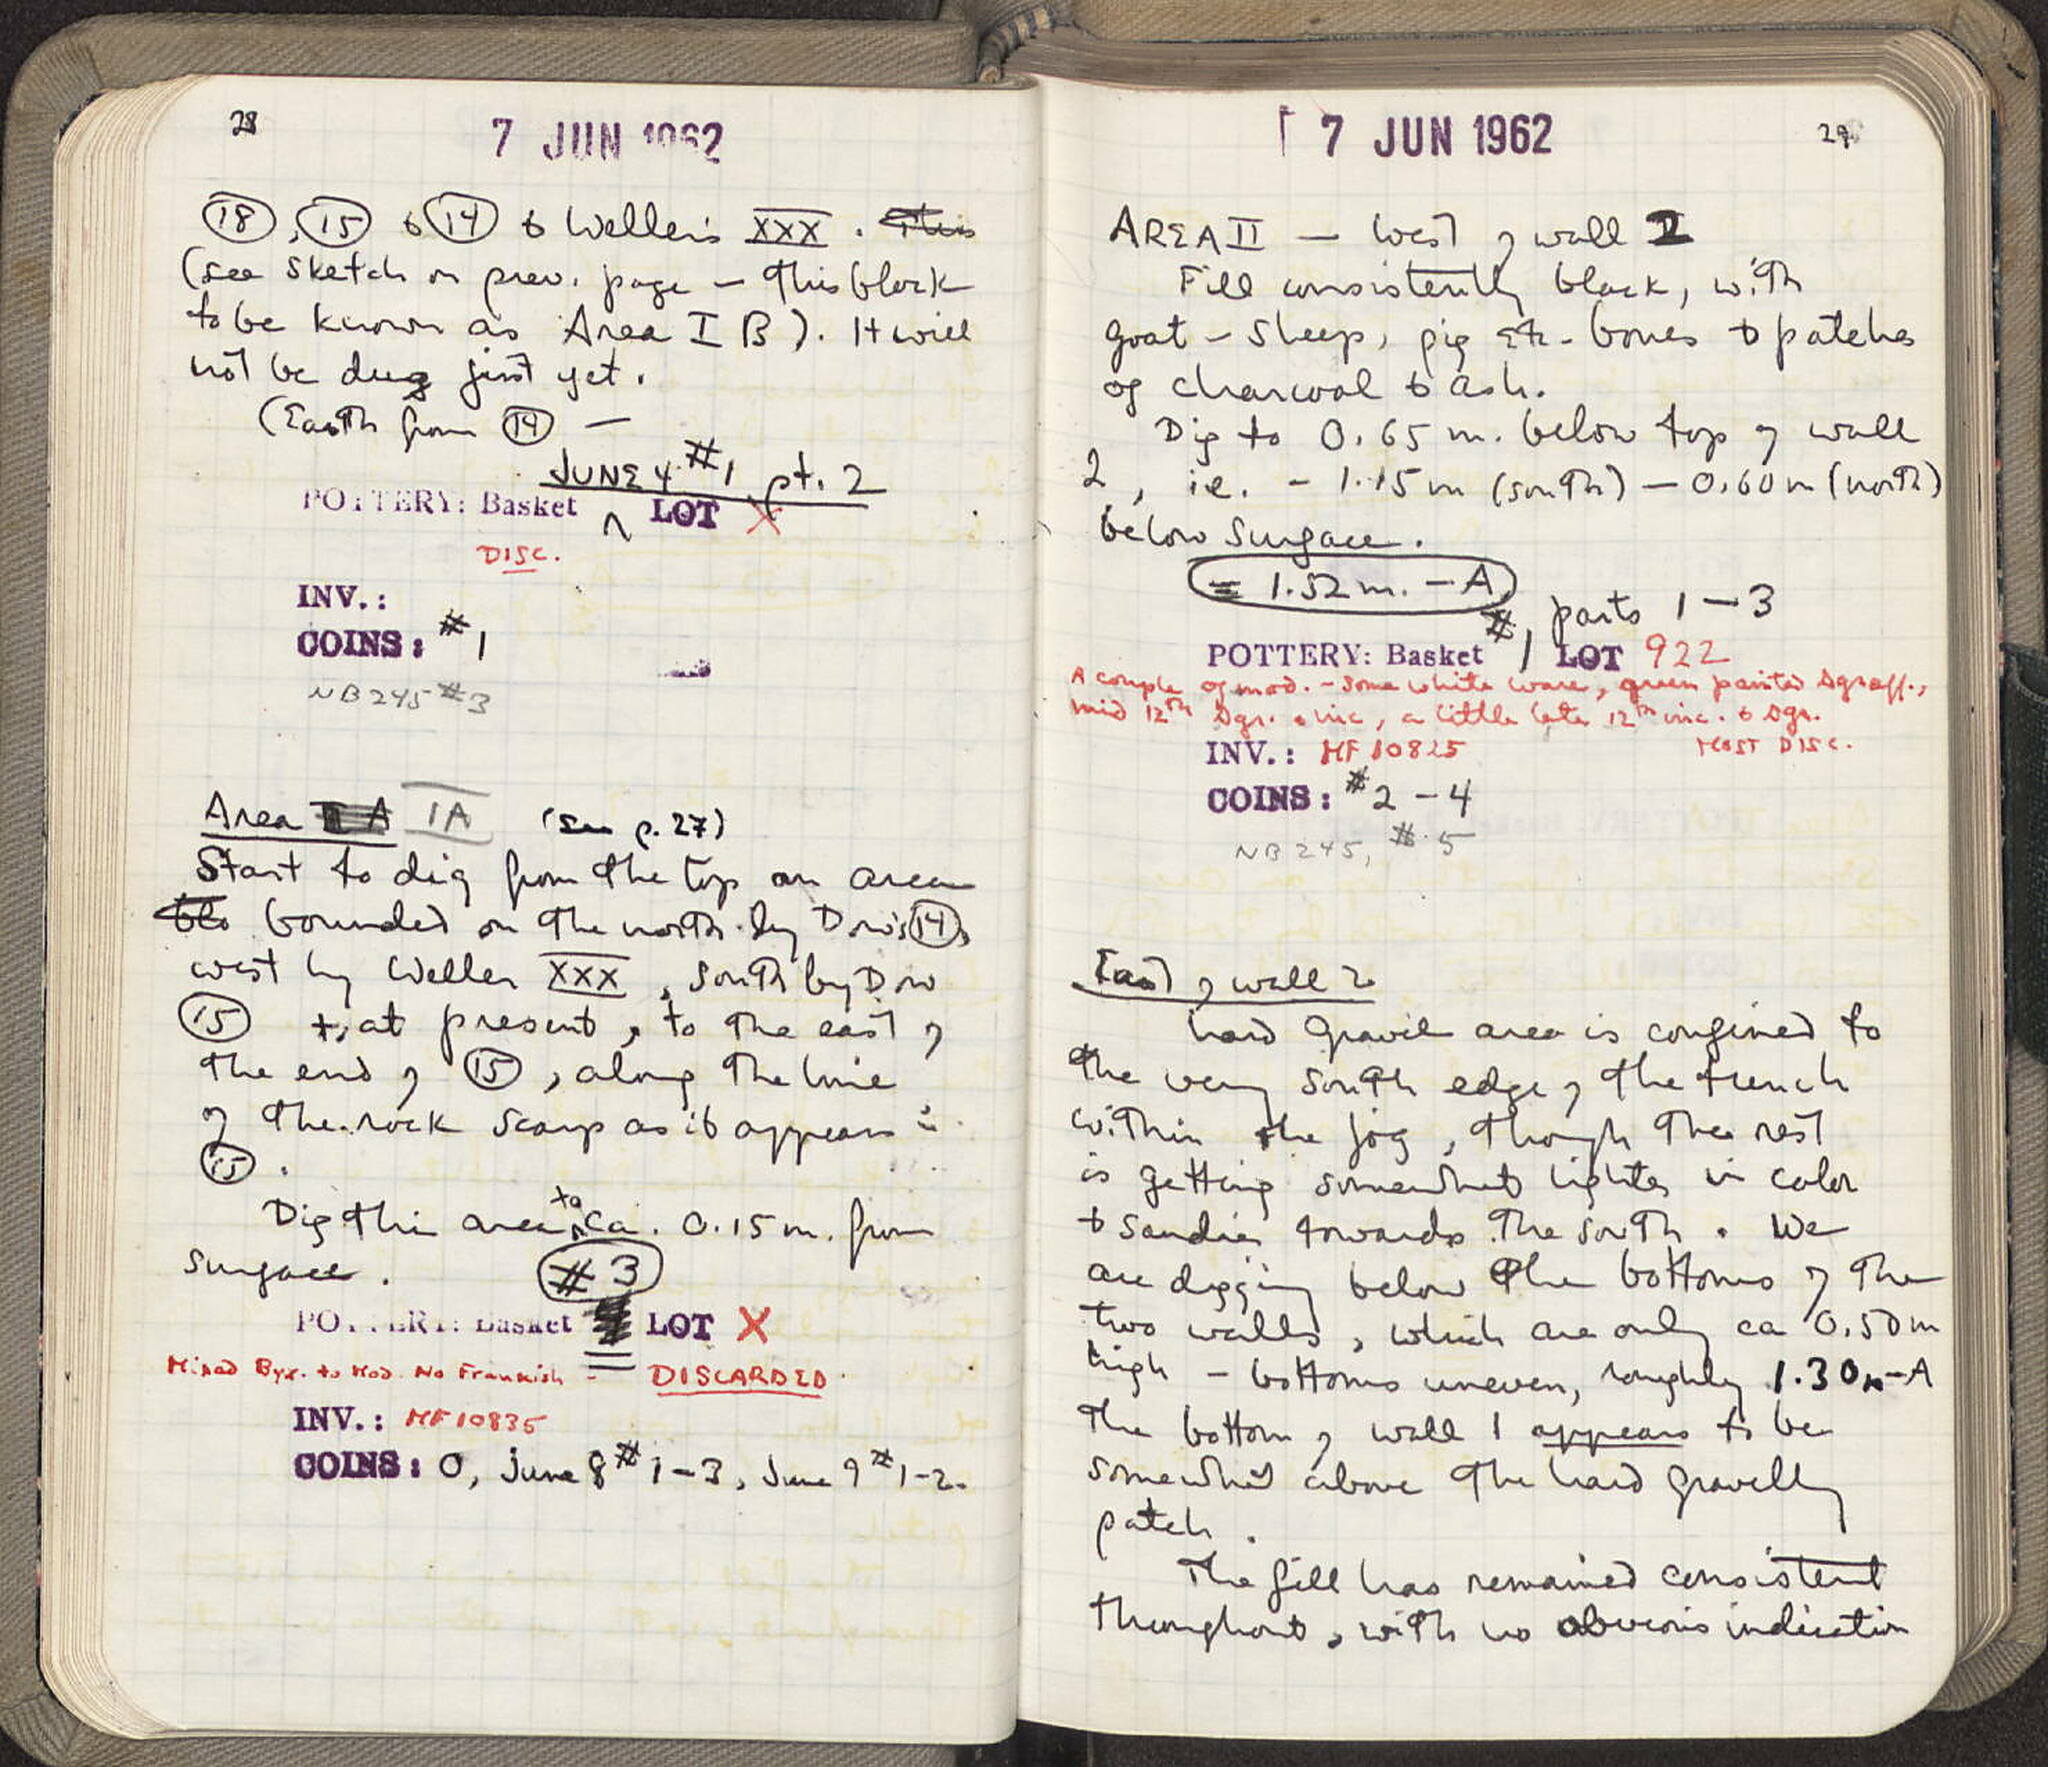 28
7 JUN 1962
18, 15 & 14 & Weller's XXX. This
(see sketch on prev. page – this block
to be known as Area I B). It will
not be dug just yet.
(Earth from 14 —
JUNE 4 #1 pt. 2
POTTERY: Basket ^ LOT X
DISC.
INV.:
COINS: #1
NB 245 #3
Area A IA (see p. 27)
Start to dig from the top an area
blo bounded on the north by Dow's 14,
west by Weller XXX, south by Dow
15 &, at present, to the east of
the end of 15, along the line
of the rock scarp as it appears in
15.
Dig this area to ca. 0.15 m. from
surface. #3
POTTERY: Basket LOT X
Mixed Byz. to Mod. No Frankish - DISCARDED.
INV.: MF 10835
COINS: 0, June 8 #1-3, June 9 #1-2.
7 JUN 1962
29
AREA II — West of wall 2
Fill consistently black, with
goat-sheep, pig etc. bones & patches
of charcoal & ash.
Dig to 0.65 m. below top of wall
2, i.e. - 1.15 m (south) – 0.60 m (north)
below surface.
= 1.52 m. – A
# 1 parts 1 – 3
POTTERY: Basket LOT 922
A couple of mod. - some white ware, green painted sgraff.,
mid 12th sgr. & inc, a little late 12th inc. & sgr.
MOST DISC.
INV.: MF 10825
COINS: #2 – 4
NB 245, #5
East of wall 2
Hard gravel area is confined to
the very south edge of the trench
within the jog, though the rest
is getting somewhat lighter in color
& sandier towards the south. We
are digging below the bottoms of the
two walls, which are only ca 0.50 m
high – bottoms uneven, roughly 1.30m-A
The bottom of wall 1 appears to be
somewhat above the hard gravelly
patch.
The fill has remained consistent
throughout, with no obvious indication